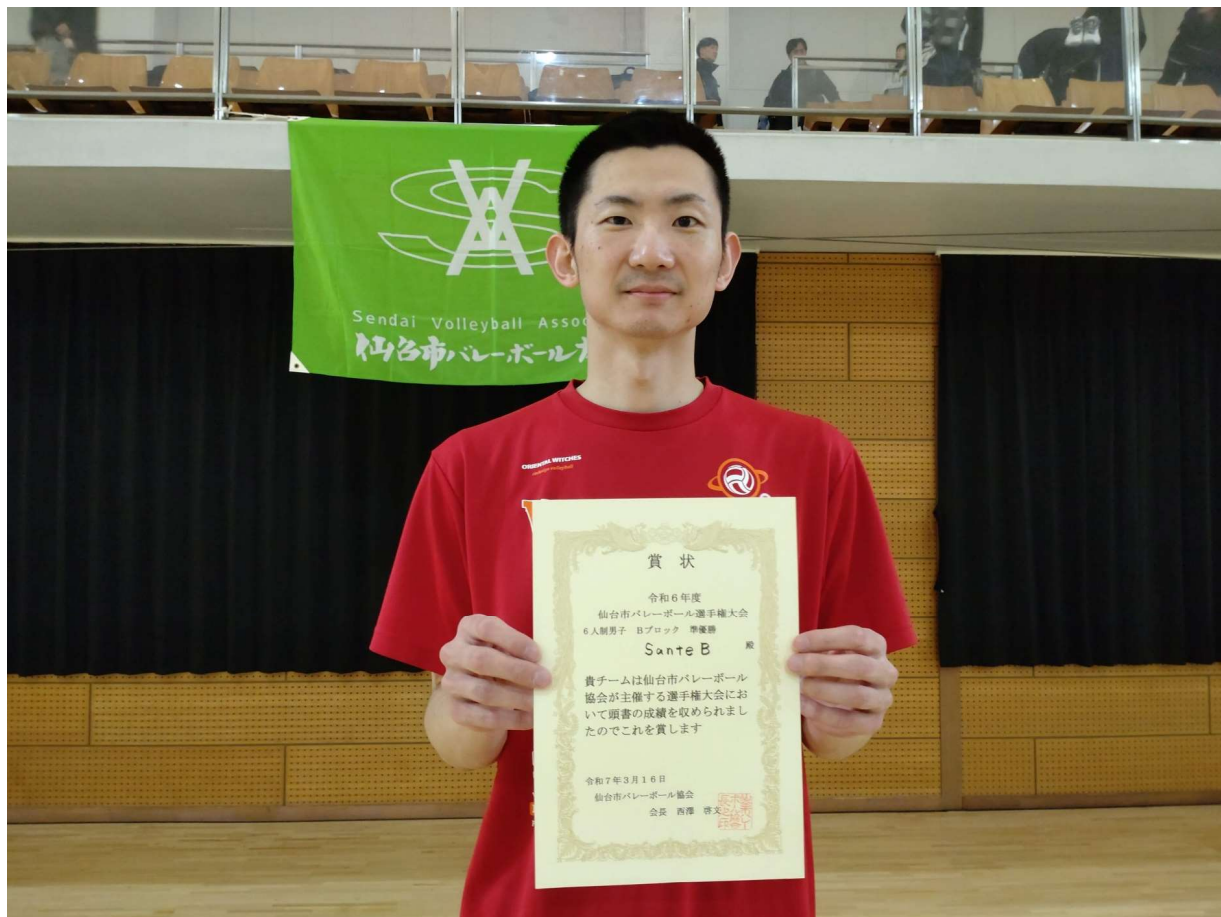 Sendai Volleyball Assoc
仙台市バレーボール
ORIENTAL WITCHES
賞 状
令和6年度
仙台市バレーボール選手権大会
6人制男子 Bブロック 準優勝
Sante B 殿
貴チームは仙台市バレーボール
協会が主催する選手権大会にお
いて頭書の成績を収められまし
たのでこれを賞します
令和7年3月16日
仙台市バレーボール協会
会長 西澤 啓文